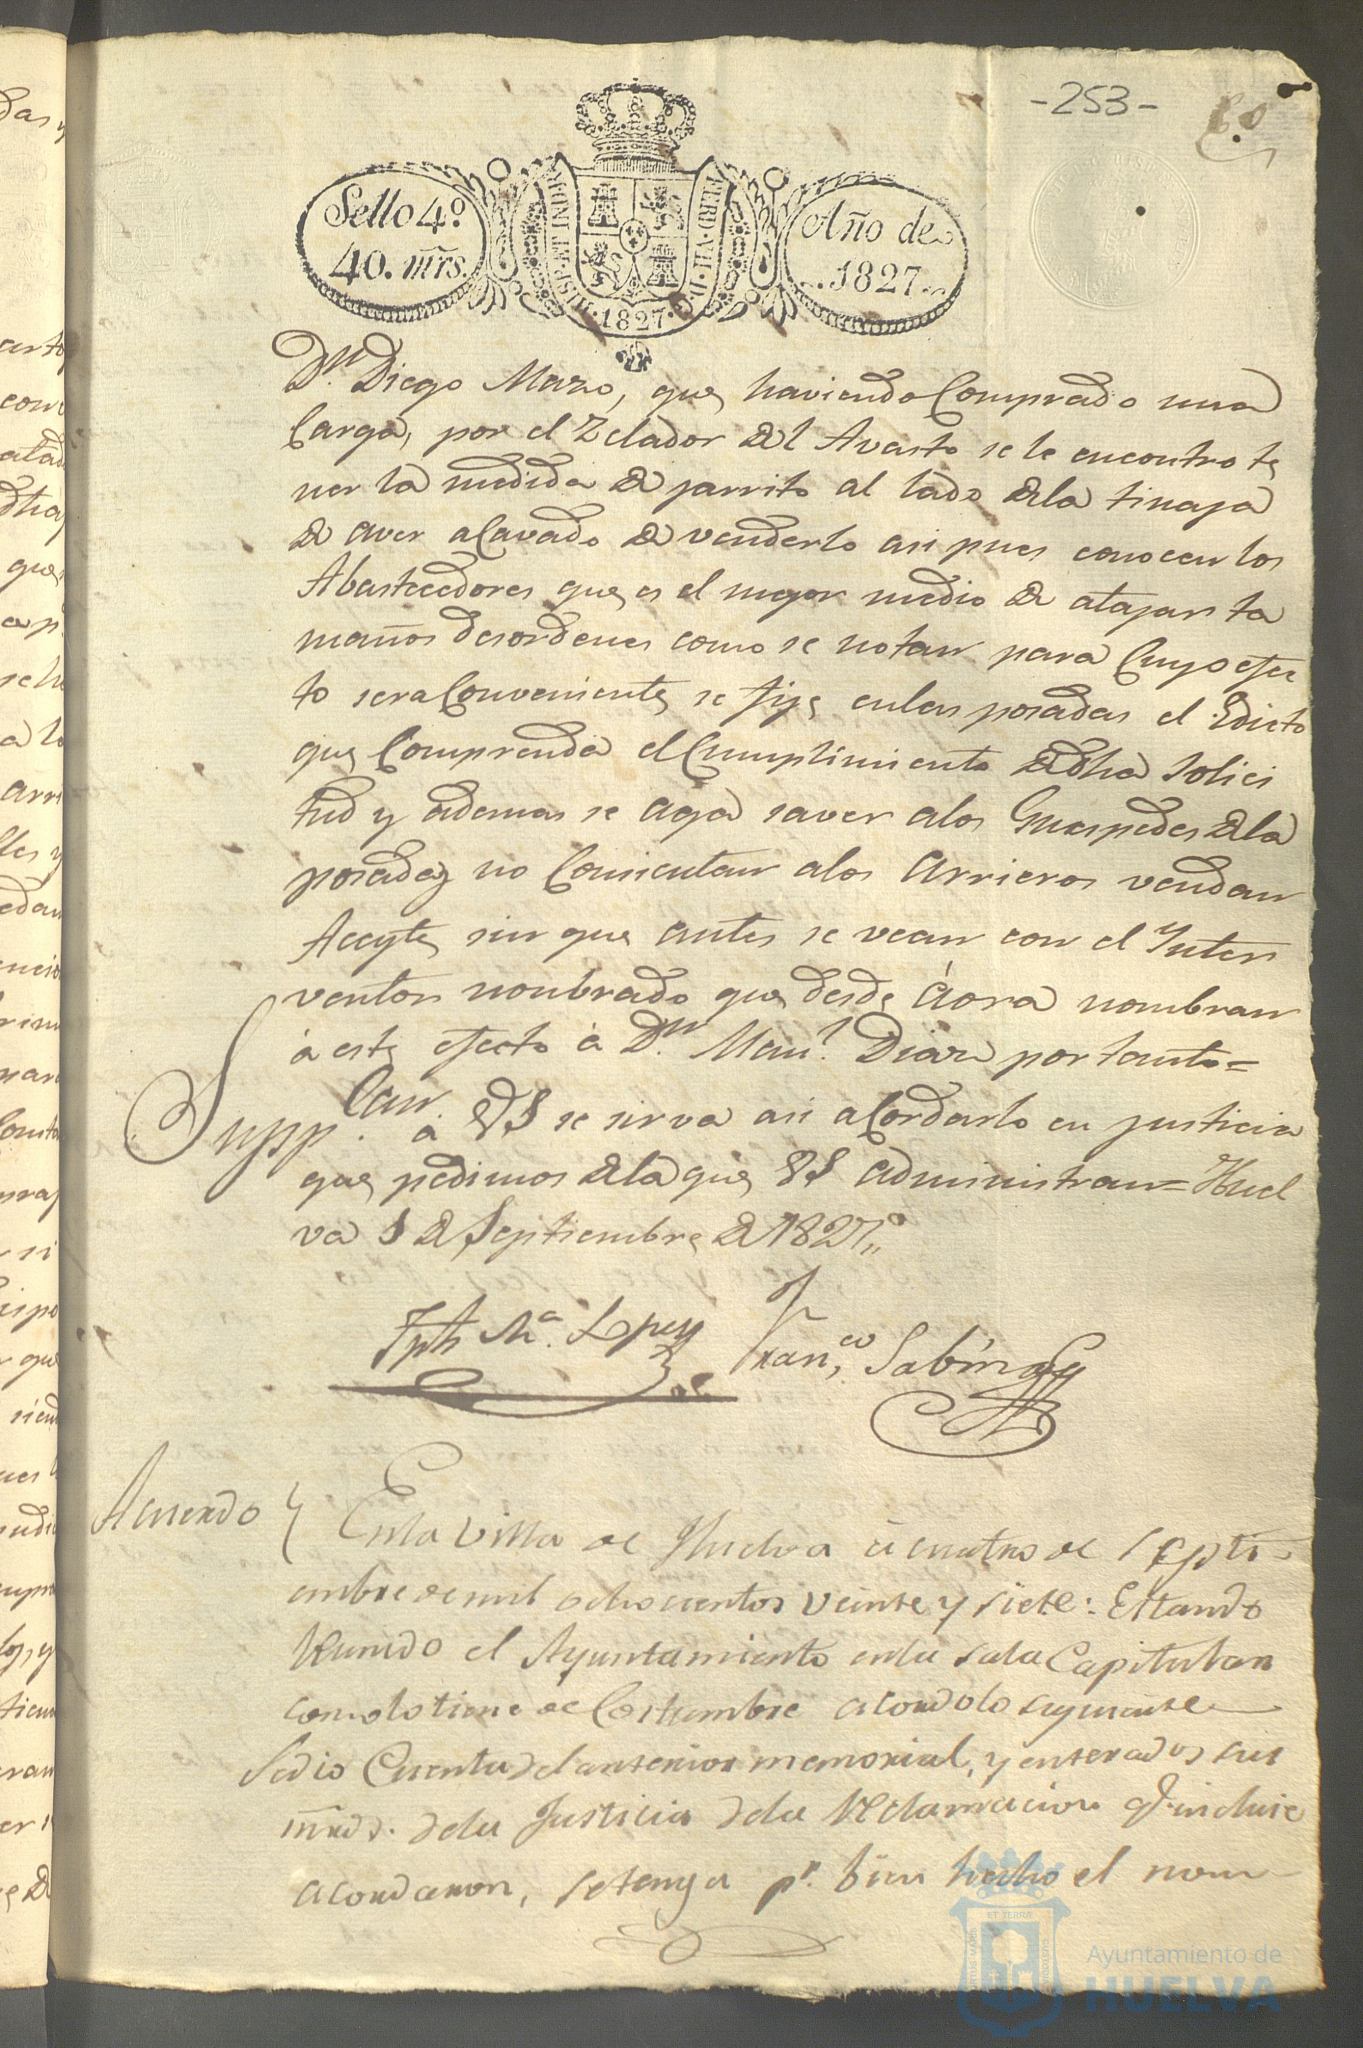 -253-
Sello 4º
40. mrs.
HISP. ET IND. R.
FERD. VII. D. G.
1827
Año de
1827
Dn. Diego Mazo, que haviendo Comprado una
Carga, por el Zelador del Avasto se le encontro te
ner la medida de jarrito al lado dela tinaja
de aver acavado de venderlo asi pues conocen los
Abastecedores que es el mejor medio de atajar ta
maños desordenes como se notan para Cuyo efec
to sera Conveniente se fije enlas posadas el Edicto
que Comprenda el Cumplimiento de dha solici
tud y ademas se aga saver alos Guespedes dela
posadas no Consientan alos Arrieros vendan
Aceyte sin que antes se vean con el Inter
ventor nonbrado que desde áora nombran
à este efecto à Dn. Manl. Diaz por tanto=
Suppcan. a VS se sirva asi acordarlo en justicia
que pedimos dela que VS administran= Huel
va 1 de Septiembre de 1827,,
Jph Ma. Lopez Franco. Sabin
Acuerdo { Enla Villa de Huelva à cuatro de Septi-
embre de mil ochocientos veinte y siete: Estando
Reunido el Ayuntamiento enla sala Capitular
como lo tiene de Costumbre acordo lo siguiente
Se dio Cuenta del anterior memorial, y enterados sus
mrds. dela Justicia dela Reclamacion q. incluie
acordaron, se tenga pr. bien hecho el nom-
ET TERRÆ
Ayuntamiento de
HUELVA